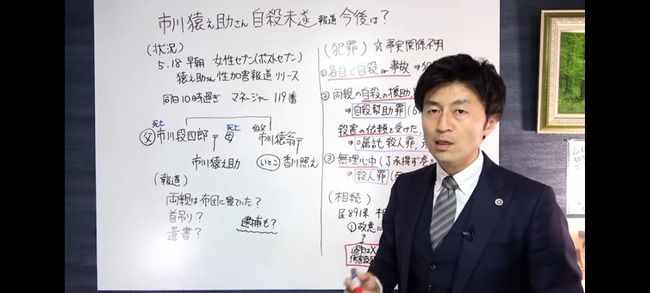 市川猿之助さん 自殺未遂 報道 今後は?
(状況)
5.18 早朝 女性セブン(ポストセブン)
猿之助さん 性加害報道 リリース
同日10時過ぎ マネージャー 119番
死亡
死亡
父 市川段四郎 母
市川猿翁
市川猿之助
いとこ 香川照之
(報道)
両親は布団に寝ていた?
首吊り?
逮捕も?
遺書?
(犯罪) ☆事実関係不明
①各自で自殺 or 事故 ⇒
②両親の自殺の援助
⇒自殺幇助罪
殺害の依頼を受けた
⇒嘱託殺人罪
③無理心中(了承得ず
⇒殺人罪
(相続)
民891条
①故意に